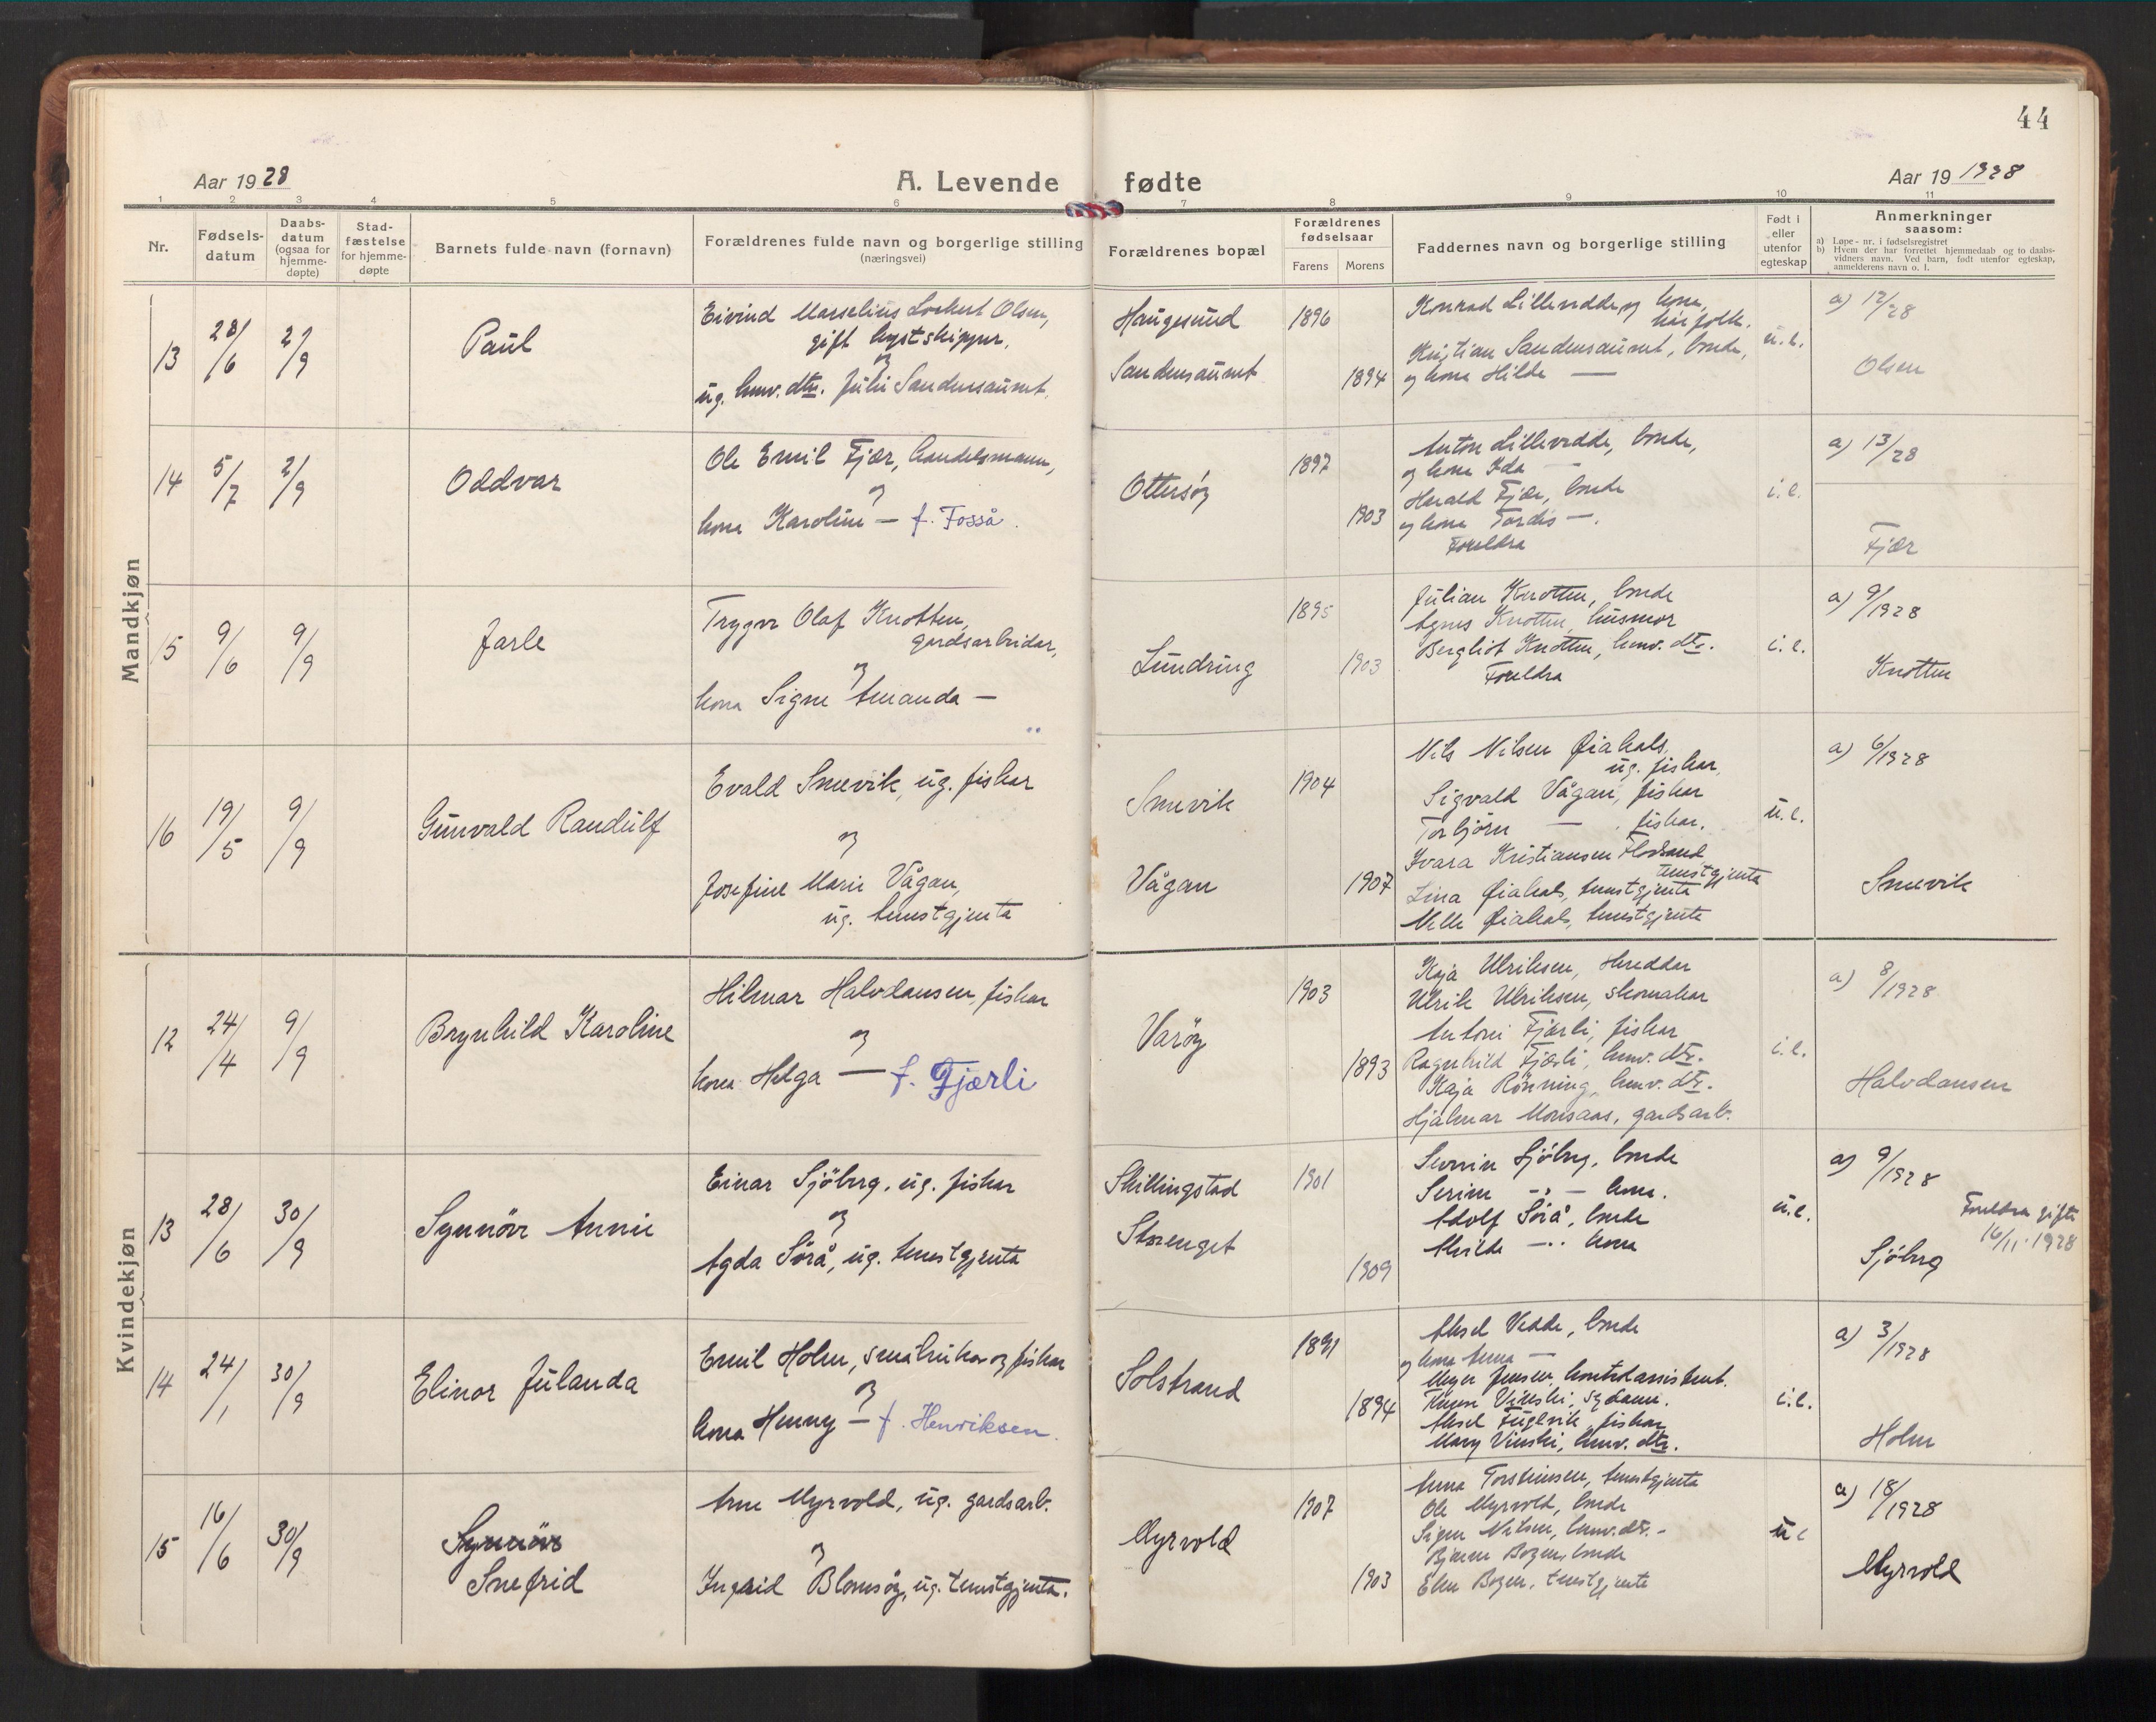 44
Aar 19 28
A. Levende fødte
Aar 19 1928
1 2 3 4 5 6 7 8 9 10 11
Nr.
Fødsels-
datum
Daabs-
datum
(ogsaa for
hjemme-
døpte)
Stad-
fæstelse
for hjemme-
døpte
Barnets fulde navn (fornavn)
Forældrenes fulde navn og borgerlige stilling
(næringsvei)
Forældrenes bopæl
Forældrenes
fødselsaar
Farens Morens
Faddernes navn og borgerlige stilling
Født i
eller
utenfor
egteskap
Anmerkninger
saasom:
a) Løpe-nr. i fødselsregistret
b) Hvem der har forrettet hjemmedaab og to daabs-
vidners navn. Ved barn, født utenfor egteskap,
anmelderens navn o. l.
Mandkjøn
13 28/6 2/9 Paul
Eivind Marselius Lockert Olsen,
gift kystskipper,
og
ug. heimv. dtr. Julie Sandersaunet.
Haugesund
Sandersaunet
1896
1894
Konrad Lillevedde og kona,
Kristian Sandersaunet, bonde,
og kona Hilde —
u.e.
a) 12/28
Olsen
14 5/7 2/9 Oddvar
Ole Emil Fjær, handelsmann,
og
kona Karoline — f. Fosså.
Ottersøy
1897
1903
Anton Lillevedde, bonde,
og kona Ida —
Harald Fjær, bonde
og kona Tordis —.
Foreldra
i.e.
a) 13/28
Fjær
15 9/6 9/9 Jarle
Trygve Olaf Knotten,
gardsarbeidar,
og
kona Signe Amanda —
Lundring
1895
1903
Julian Knotten, bonde
Agnes Knotten, husmor
Bergliot Knotten, heimv. dtr.
Foreldra
i.e.
a) 9/1928
Knotten
16 19/5 9/9 Gunvald Randulf
Evald Smevik, ug. fiskar
og
Josefine Marie Vågan,
ug. tenestgjenta
Smevik
Vågan
1904
1907
Nils Nilsen Øiahals,
ug. fiskar,
Sigvald Vågan, fiskar
Torbjörn — fiskar.
Ivara Kristiansen Flosand
tenestgjenta
Lina Øiahals, tenestgjenta
Nelle Øiahals, tenestgjente
u.e.
a) 6/1928
Smevik
Kvindekjøn
12 24/4 9/9 Brynhild Karoline
Hilmar Halvdansen, fiskar
og
kona Helga — f. Fjærli
Varöy
1903
1893
Kaja Ulriksen,
Ulrik Ulriksen, skomakar
Antoni Fjærli, fiskar
Ragnhild Fjærli, heimv. dtr.
Kaja Rönning, heimv. dtr.
Hjalmar Monsaas, gardsarb.
i.e.
a) 8/1928
Halvdansen
13 28/6 30/9 Synnöve Annie
Einar Sjöberg, ug. fiskar
og
Agda Sörå, ug. tenestgjenta
Skillingstad
Storenget
1901
1909
Severin Sjöberg, bonde
Serine — kona.
Adolf Sörå, bonde
Alvilde — kona
u.e.
a) 9/1928
Foreldra gifte
16/11 1928
Sjöberg
14 24/1 30/9 Elinor Julanda
Emil Holm, småbrukar og fiskar
og
kona Henny — f. Henriksen.
Solstrand
1891
1894
Aksel Vedde, bonde
og kona Anna —
Meyer Jensen, kontorassistent.
Vinski, sydame.
Aksel Fuglevik, fiskar
Mary Vinski, heimv. dtr.
i.e.
a) 3/1928
Holm
15 16/6 30/9 Synnöve
Snefrid
Arne Myrvold, ug. gardsarb.
og
Ingrid Blomsöy, ug. tenestgjenta.
Myrvold
1907
1903
Anna Torstensen, tenestgjenta
Ole Myrvold, bonde
Signe Nilsen, heimv. dtr.
Bjarne Bogen, bonde
Elen Bogen, tenestgjente
u e
a) 18/1928
Myrvold